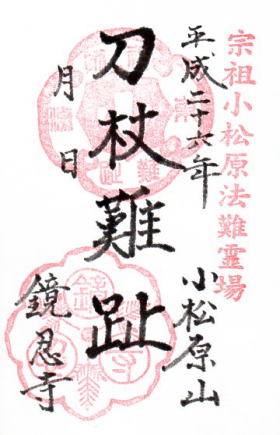 宗祖小松原法難霊場
平成二十六年
月 日
刀杖難趾
小松原山
鏡忍寺